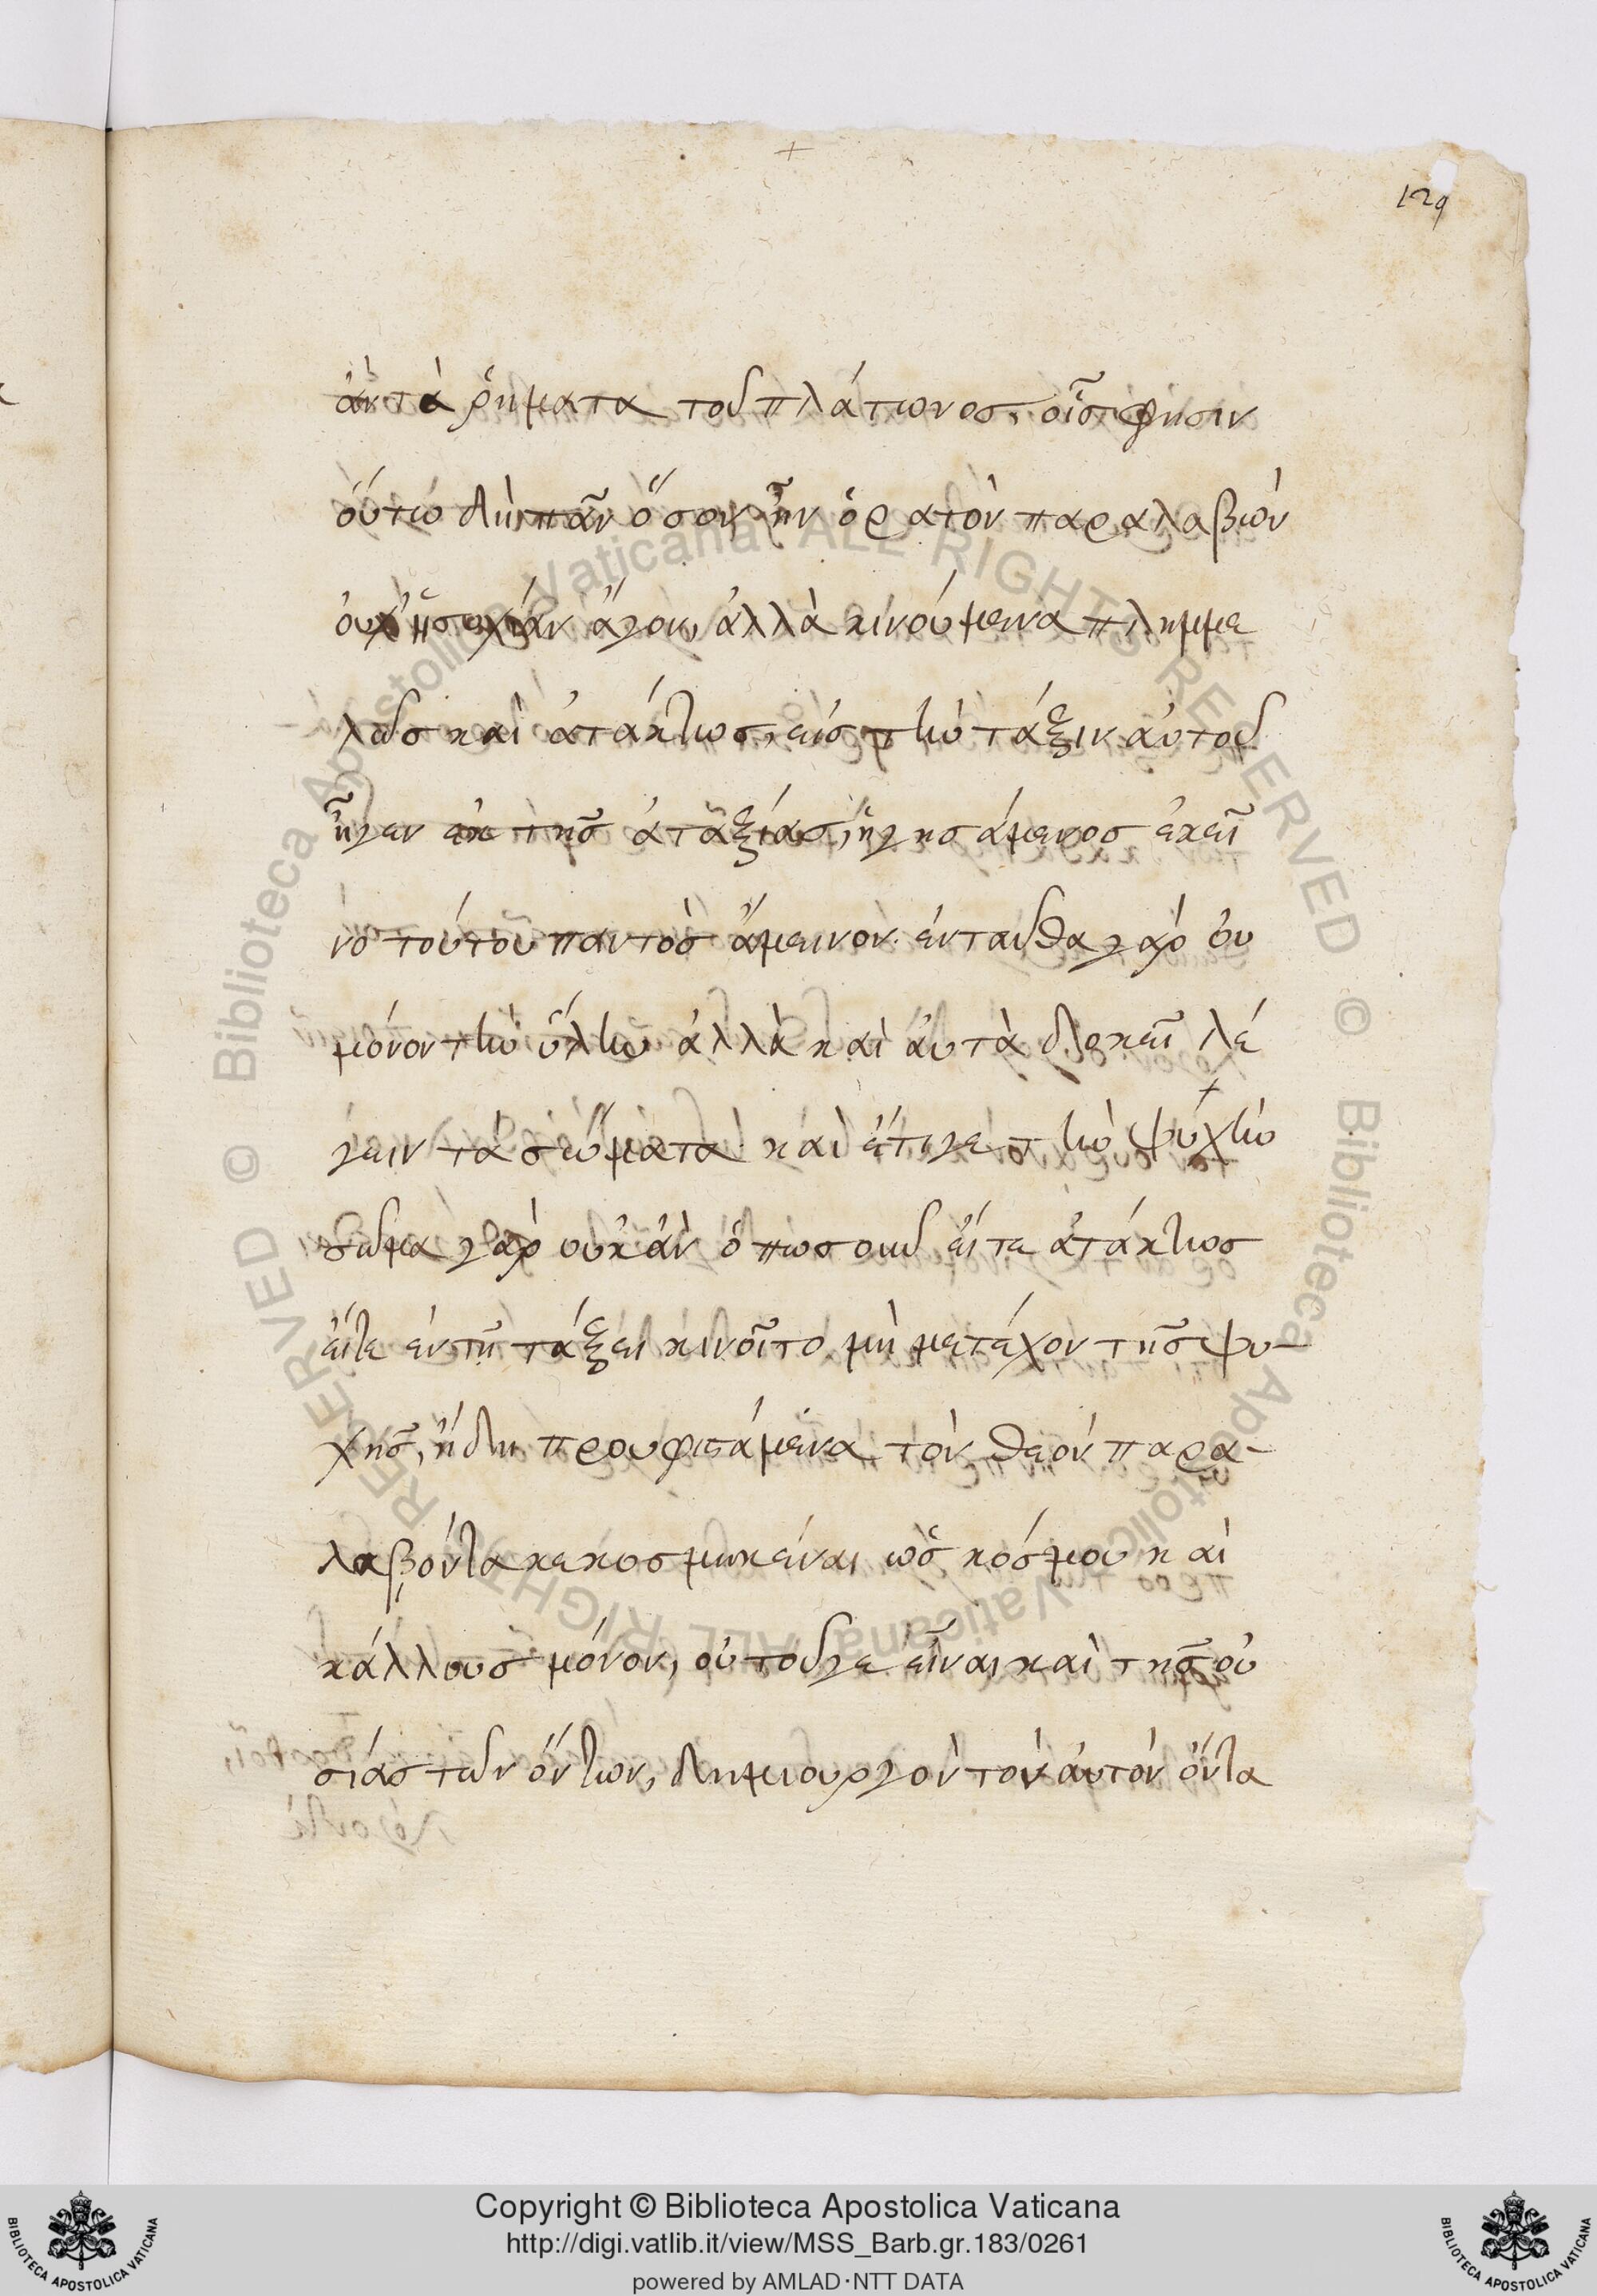 129
ἂν τὰ ῥήματα τοῦ πλάτωνος, οἷς φησιν
ὁύτω δὴ πᾶν ὅσον ἦν ὁρατὸν παραλαβὼν
ὀυχ ἡσυχίαν ἄγον, ἀλλὰ κινούμενα πλημμε
λῶς καὶ ἀτάκτως, εἰς τὴν τάξιν ἀυτοῦ
ἦγεν ἐκ τῆς ἀταξίας, ἡγησάμενος ἐκεῖ
νο τούτου παντὸς ἄμεινον. ἐνταῦθα γὰρ ὀυ
μόνον τὴν ὕλην ἀλλὰ καὶ ἀυτὰ δοκεῖ λέ
γειν τὰ σώματα καὶ ἔτι γε τὴν ψυχὴν
σῶμα γὰρ οὐκ ἂν ὁπωσοῦν εἴτε ἀτάκτως
εἴτε ἐν τῆ τάξει κινοῖτο μὴ μετέχον τῆς ψυ-
χῆς, ἤδη προυφιστάμενα τὸν θεὸν παρα-
λαβόντα κεκοσμηκέναι ὡς κόσμου καὶ
κάλλους μόνον, οὐ τοῦ γε εἶναι καὶ τῆς οὐ
σίας τῶν ὄντων, δημιουργὸν τὸν ἀυτὸν ὄντα
Copyright © Biblioteca Apostolica Vaticana
http://digi.vatlib.it/view/MSS_Barb.gr.183/0261
powered by AMLAD·NTT DATA
BIBLIOTECA APOSTOLICA VATICANA
BIBLIOTECA APOSTOLICA VATICANA
© Biblioteca Apostolica Vaticana ALL RIGHTS RESERVED © Biblioteca Apostolica Vaticana ALL RIGHTS RESERVED